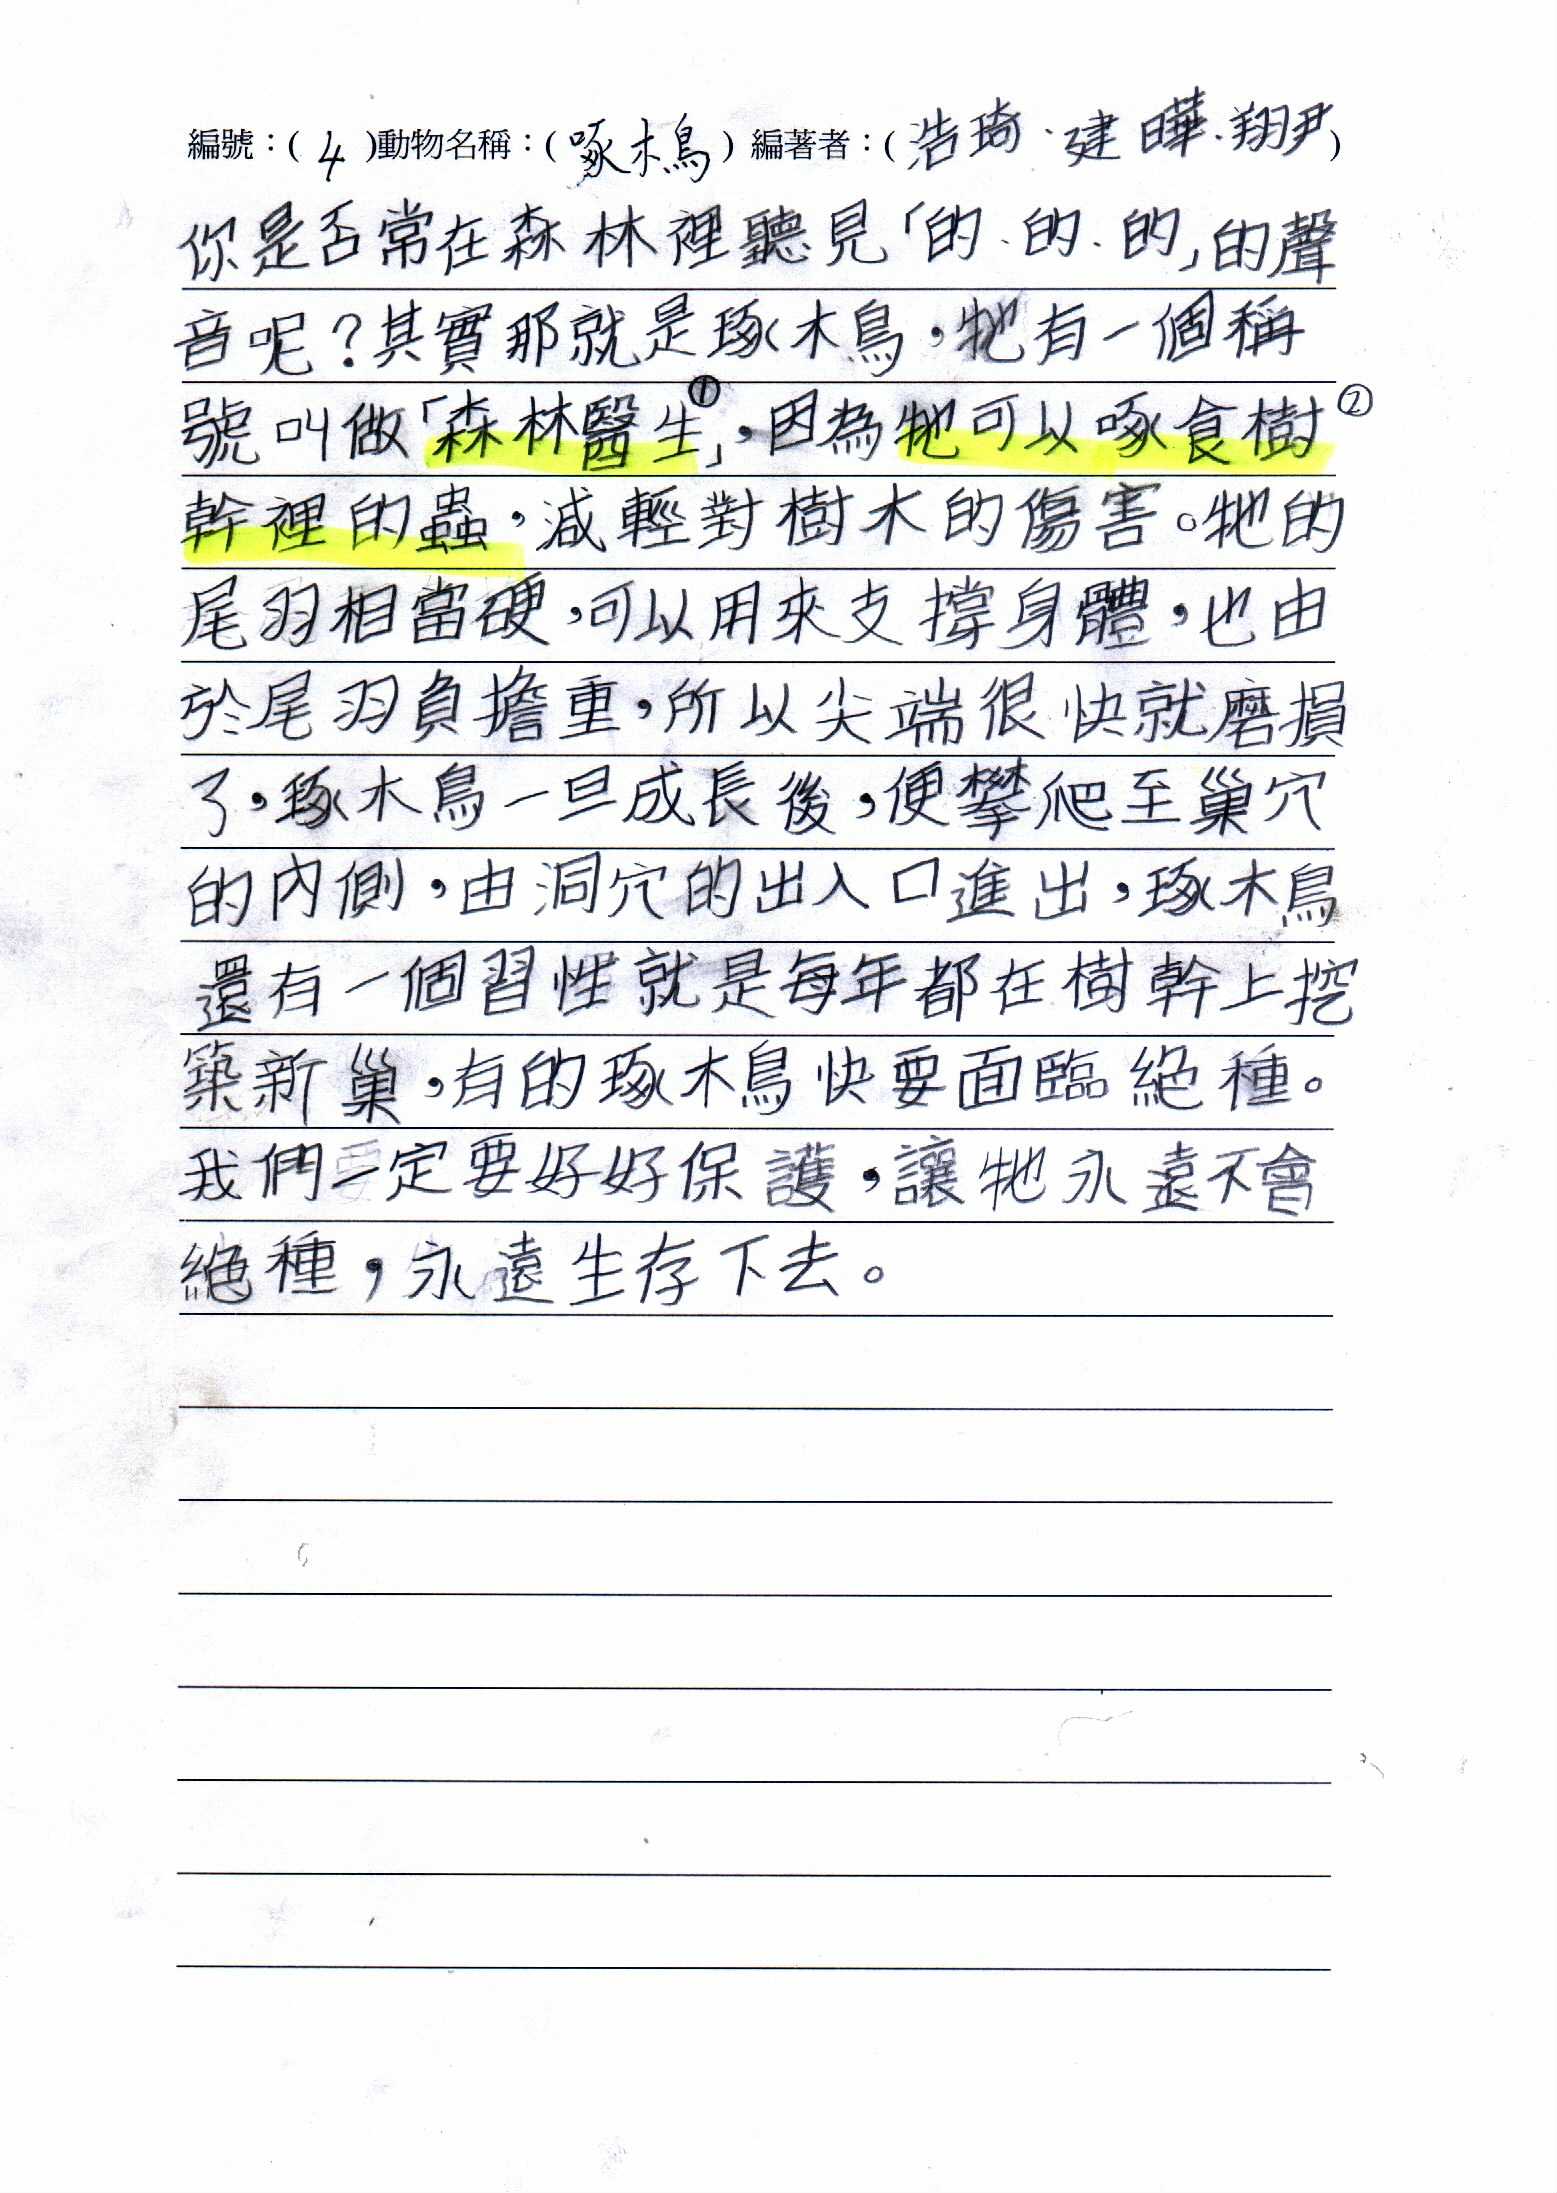 編號：( 4 )動物名稱：( 啄木鳥 ) 編著者：( 浩琦、建曄、翔尹 )
你是否常在森林裡聽見「的、的、的」的聲
音呢？其實那就是琢木鳥，牠有一個稱
號叫做「森林醫生」①，因為牠可以啄食樹②
幹裡的蟲，減輕對樹木的傷害。牠的
尾羽相當硬，可以用來支撐身體，也由
於尾羽負擔重，所以尖端很快就磨損
了，琢木鳥一旦成長後，便攀爬至巢穴
的內側，由洞穴的出入口進出，琢木鳥
還有一個習性就是每年都在樹幹上挖
築新巢，有的琢木鳥快要面臨絕種。
我們一定要好好保護，讓牠永遠不會
絕種，永遠生存下去。